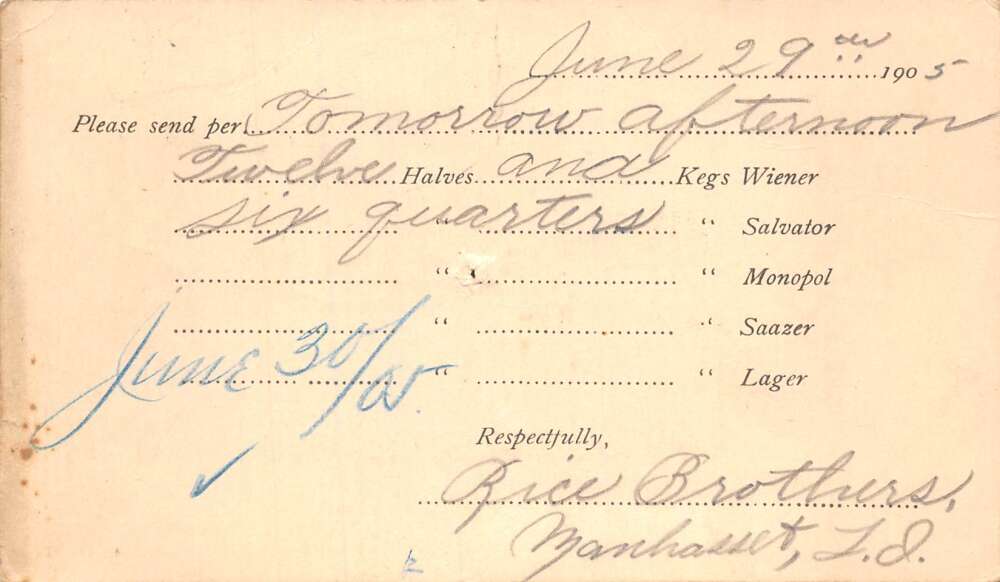 June 29th 1905
Please send per Tomorrow afternoon
Twelve Halves and Kegs Wiener
six quarters " Salvator
" " Monopol
" " Saazer
" " Lager
June 30/05.
Respectfully,
Rice Brothers,
Manhasset, L.I.